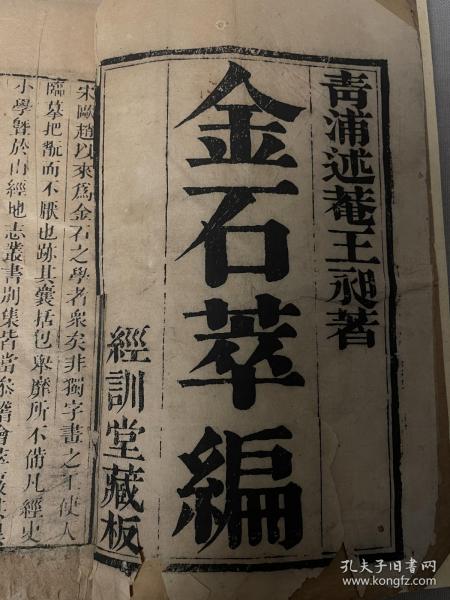 青浦述菴王昶著
金石萃編
經訓堂藏板
宋歐趙以來爲金石之學者衆矣非獨字畫之工使人
臨摹把翫而不厭也跡其囊括包舉靡所不備凡經史
小學曁於山經地志叢書別集皆當參稽會萃
孔夫子旧书网
www.kongfz.com